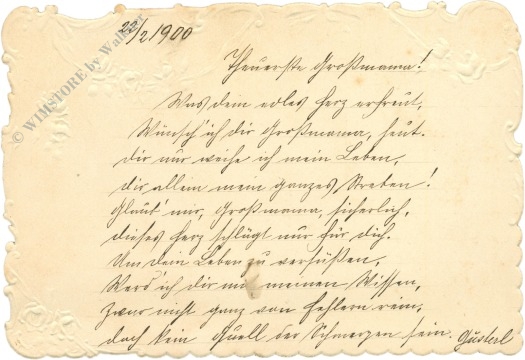 23/2 1900
Theuerste Großmama!
Was dein edles Herz erfreut,
Wünsch' ich dir Großmama, heut.
Dir nur weihe ich mein Leben,
dir allein mein ganzes Streben!
Glaub' mir, Großmama, sicherlich,
dieses Herz schlägt nur für dich.
Um dein Leben zu versüßen,
Werd' ich dir mit meinen Wissen,
Zwar nicht ganz von Fehlern rein,
doch kein Quell der Schmerzen sein. Gusterl
© WIMSTORE by